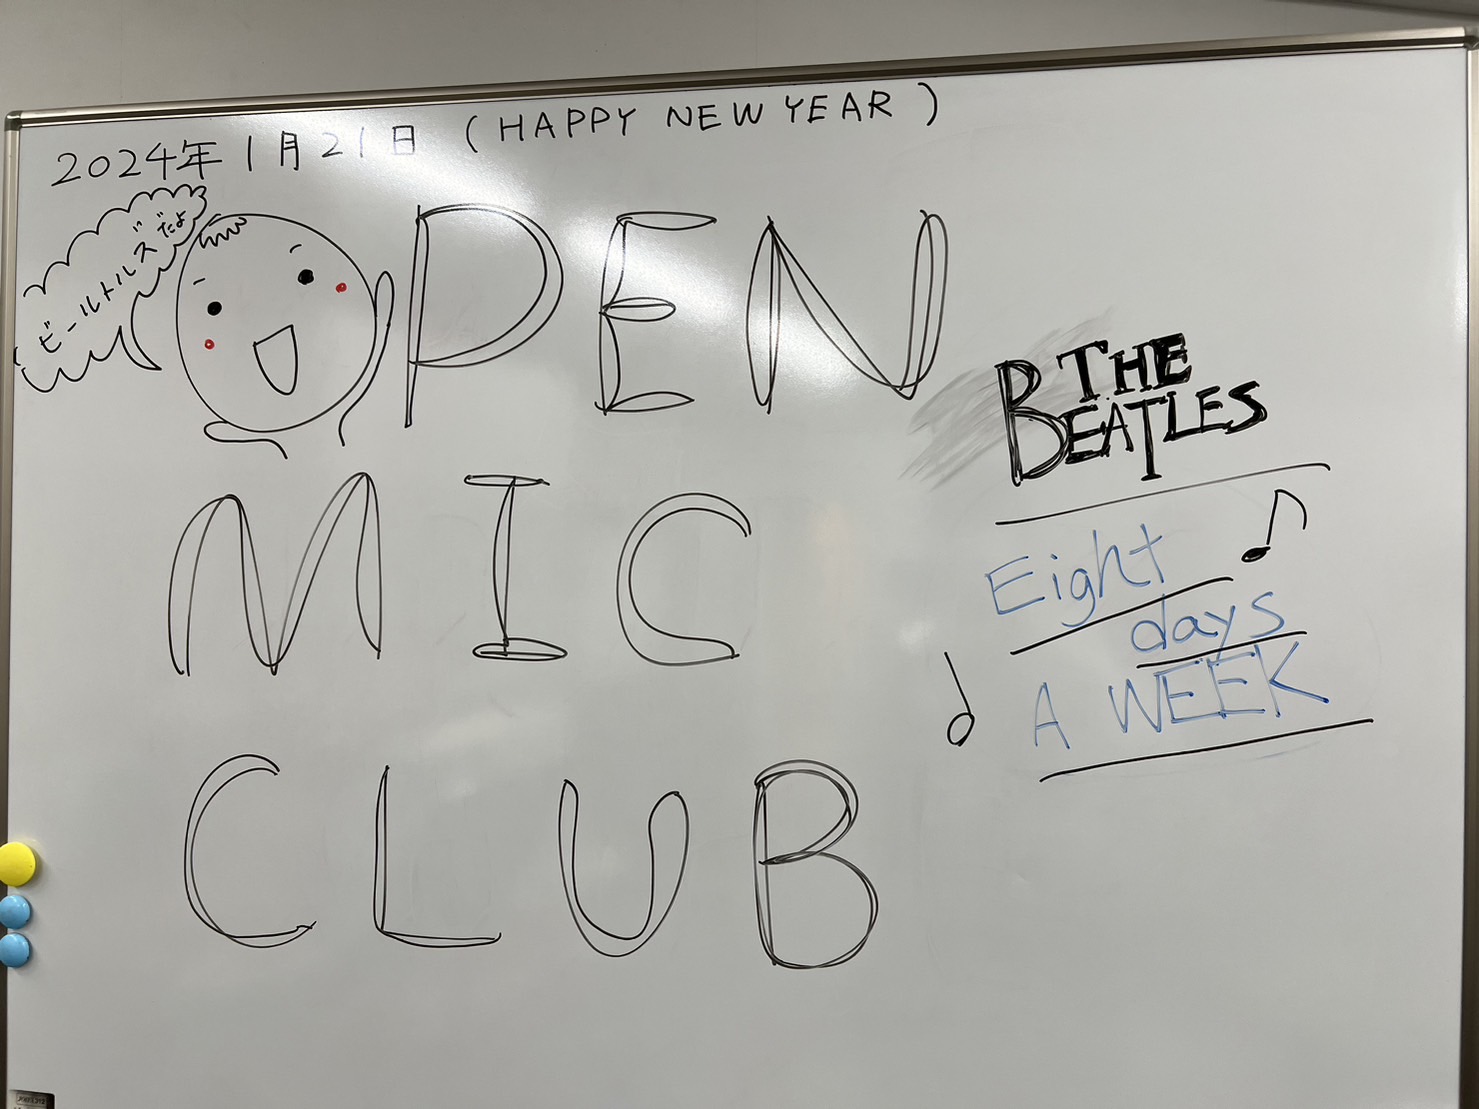 2024年1月21日 (HAPPY NEW YEAR)
ビールトルズだよ
OPEN
MIC
CLUB
THE
BEATLES
Eight
days
A WEEK